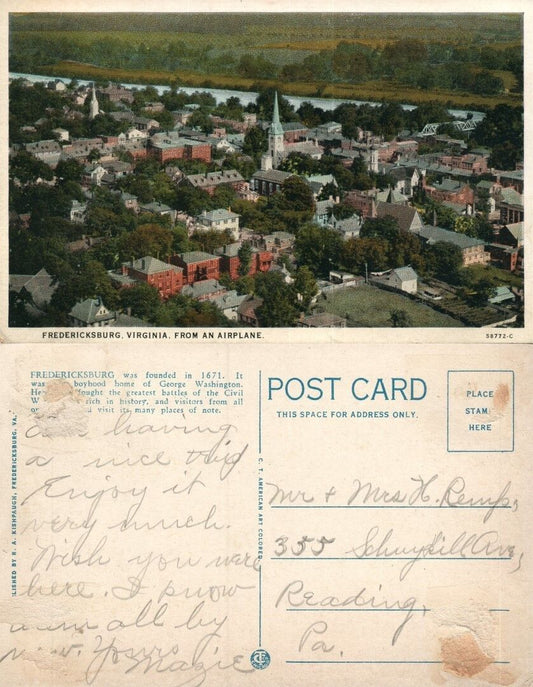 FREDERICKSBURG, VIRGINIA, FROM AN AIRPLANE.
58772-C
FREDERICKSBURG was founded in 1671. It
was boyhood home of George Washington.
fought the greatest battles of the Civil
rich in history, and visitors from all
visit its many places of note.
LISHED BY R. A. KISHPAUGH, FREDERICKSBURG, VA.
having
a nice trip
Enjoy it
very much.
Wish you were
here. I know
all by
now. Yours
Mazie
C. T. AMERICAN ART COLORED
POST CARD
THIS SPACE FOR ADDRESS ONLY.
PLACE
STAM
HERE
Mr + Mrs H. Kemp,
355 Schuylkill Ave,
Reading,
Pa.